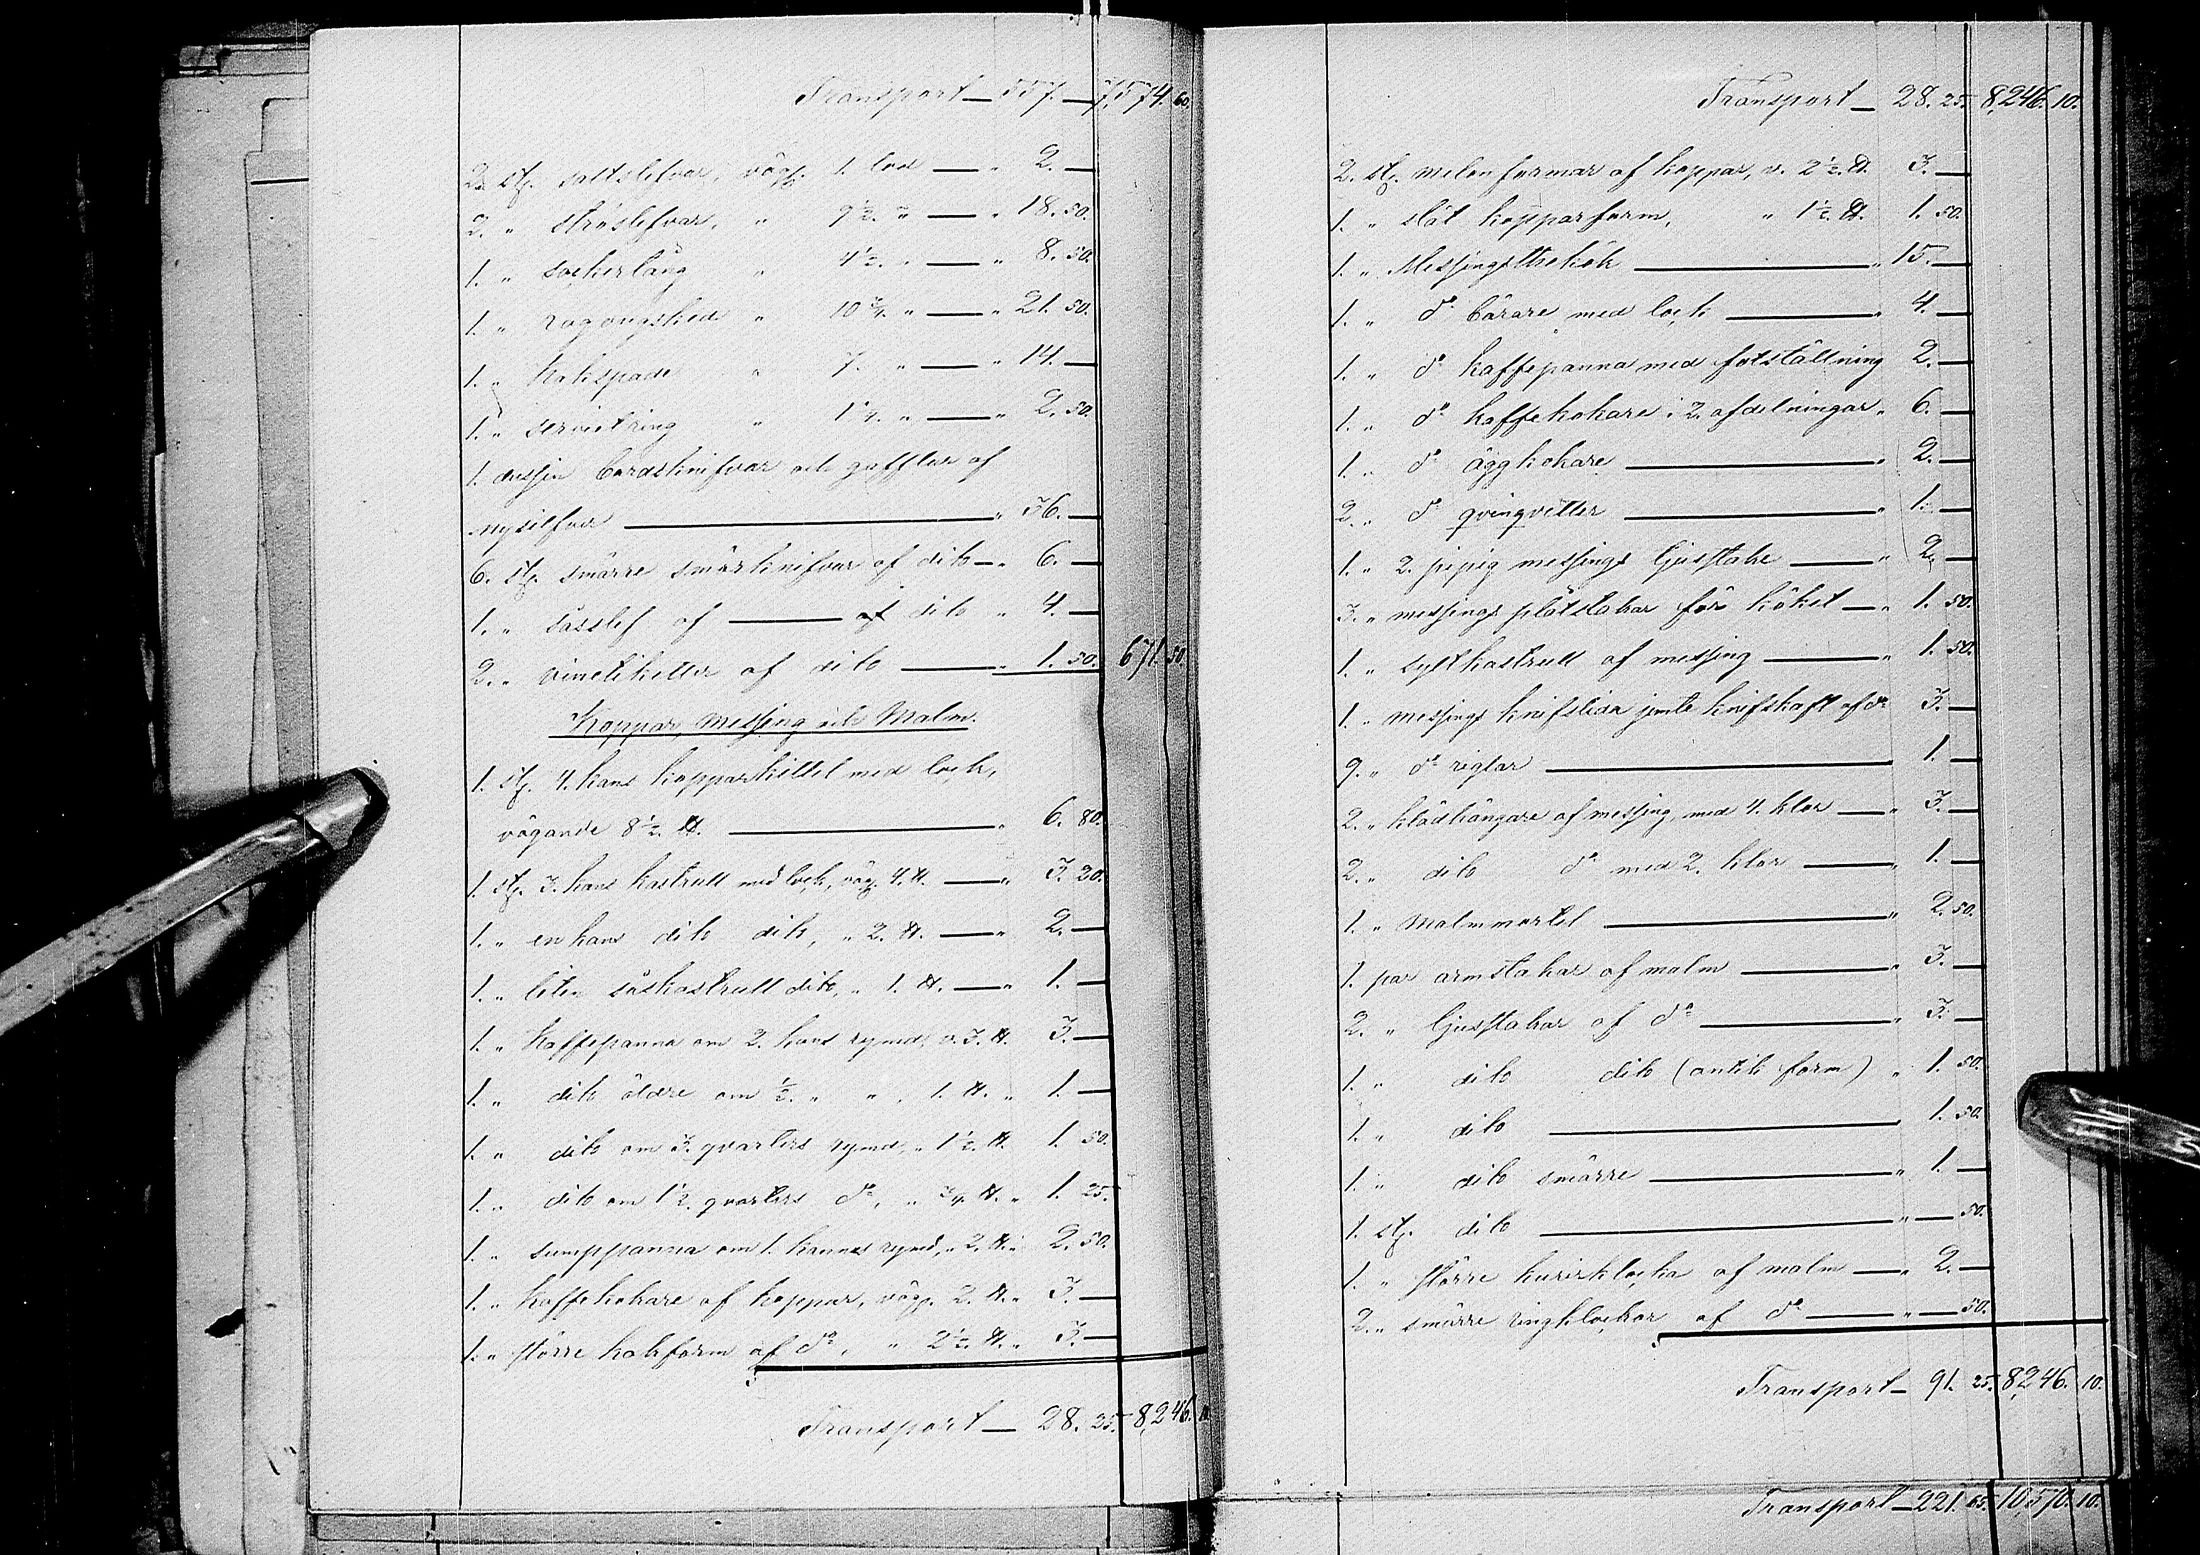 Transport — 557. — 7,574. 60.
2. stz. saltslefvar, väg. 1. lod — " 2. —
2. " ströslefvar, " 9 1/2. " — " 18. 50.
1. " sockertång " 4 1/2. " — " 8. 50.
1. " ragougsked " 10 3/4. " — " 21. 50.
1. " Kakspade " 7. " — " 14. —
1. " servietring " 1 1/4. " — " 2. 50.
1. dussin bordsknifvar och gafflar af
nysilfver — " 36. —
6. stz. smärre smörknifvar af dito — " 6. —
1. " såsslef af — af dito " 4. —
2. " vinetiketter af dito — " 1. 50. 671. 50
Koppar, Messing och Malm.
1. stz. 4. kans kopparkittel med lock,
vägande 8 1/2. ℔. — " 6. 80.
1. stz. 3. kans kastrull med lock, väg. 4. ℔. — " 3. 20.
1. " en kans dito dito, " 2. ℔. — " 2. —
1. " liten såskastrull dito, " 1. ℔. — " 1. —
1. " Kaffepanna om 2. kans rymd, v. 3. ℔. 3. —
1. " dito äldre om 1/2. " " , 1. ℔. " 1. —
1. " dito om 3. qvarters rymd, " 1 1/2. ℔. 1. 50.
1. " dito om 1 1/2. qvarters d:o, " 3/4. ℔. " 1. 25.
1. " sumppanna om 1. kannas rymd, " 2. ℔. " 2. 50.
1. " Kaffekokare af koppar, väg. 2. ℔. " 3. —
1. " större kakform af d:o, " 2 1/2. ℔. " 3. —
Transport — 28. 25. 8,246. 10.
Transport — 28. 25. 8,246. 10.
2. stz. melonformar af koppar, v. 2 1/2. ℔. 3. —
1. " slät kopparform, " 1 1/2. ℔. 1. 50.
1. " Messingsthekök — " 15. —
1. " d:o bärare med lock — " 4. —
1. " d:o kaffepanna med fotställning 2. —
1. " d:o kaffekokare i 2. afdelningar " 6. —
1. " d:o äggkokare — " 2. —
2. " d:o qvingvetter — " 1. —
1. " 2. pipig messings ljusstake — " 2. —
3. " messings plåtstakar för köket — " 1. 50.
1. " syltkastrull af messing — " 1. 50.
1. " messings knifslida jemte knifskaft af d:o 3. —
9. " d:o riglar — 1. —
2. " klädhängare af messing, med 4. klor — " 3. —
2. " dito d:o med 2. klor — " 1. —
1. " Malmmortel — " 2. 50.
1. par armstakar af malm — " 3. —
2. " ljusstakar af d:o — " 3. —
1. " dito dito (antik form) " 1. 50.
1. " dito — 1. 50.
1. " dito smärre — " 1. —
1. stz. dito — " — 50.
1. " större kurirklocka af malm — " 2. —
2. " smärre ringklockor af d:o — " — 50.
Transport — 91. 25. 8,246. 10.
Transport — 221. 65. 10,570. 10.